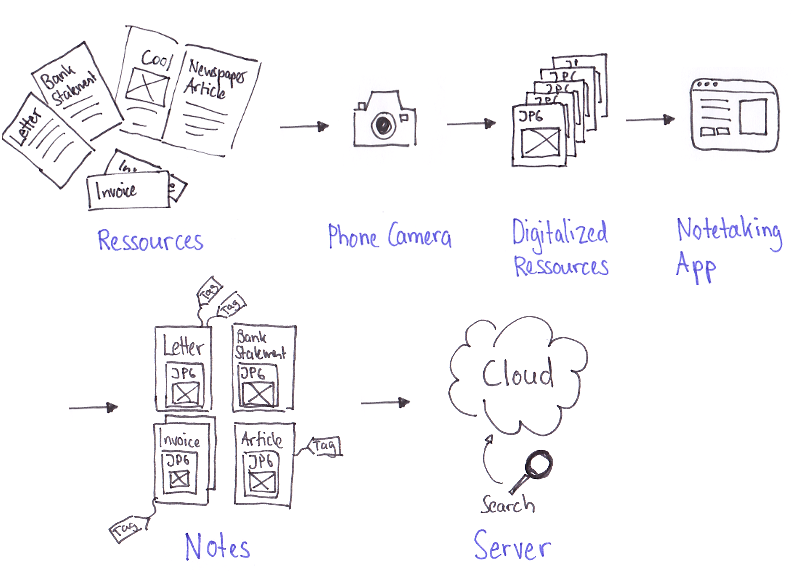 Bank
Statement
Letter
Cool
Newspaper
Article
Invoice
JPG
JPG
Ressources
Phone Camera
Digitalized
Ressources
Notetaking
App
Tag
Tag
Letter
JPG
Bank
Statement
JPG
Invoice
JPG
Article
JPG
Tag
Tag
Notes
Cloud
Search
Server